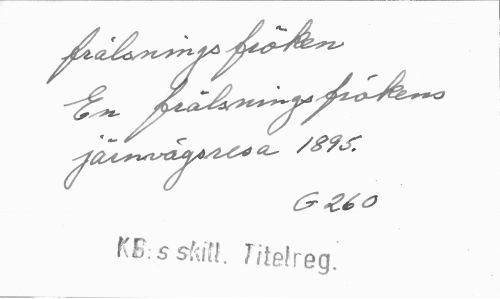 frälsningsfröken
En frälsningsfrökens
järnvägsresa 1895.
G 260
KB:s skill. Titelreg.